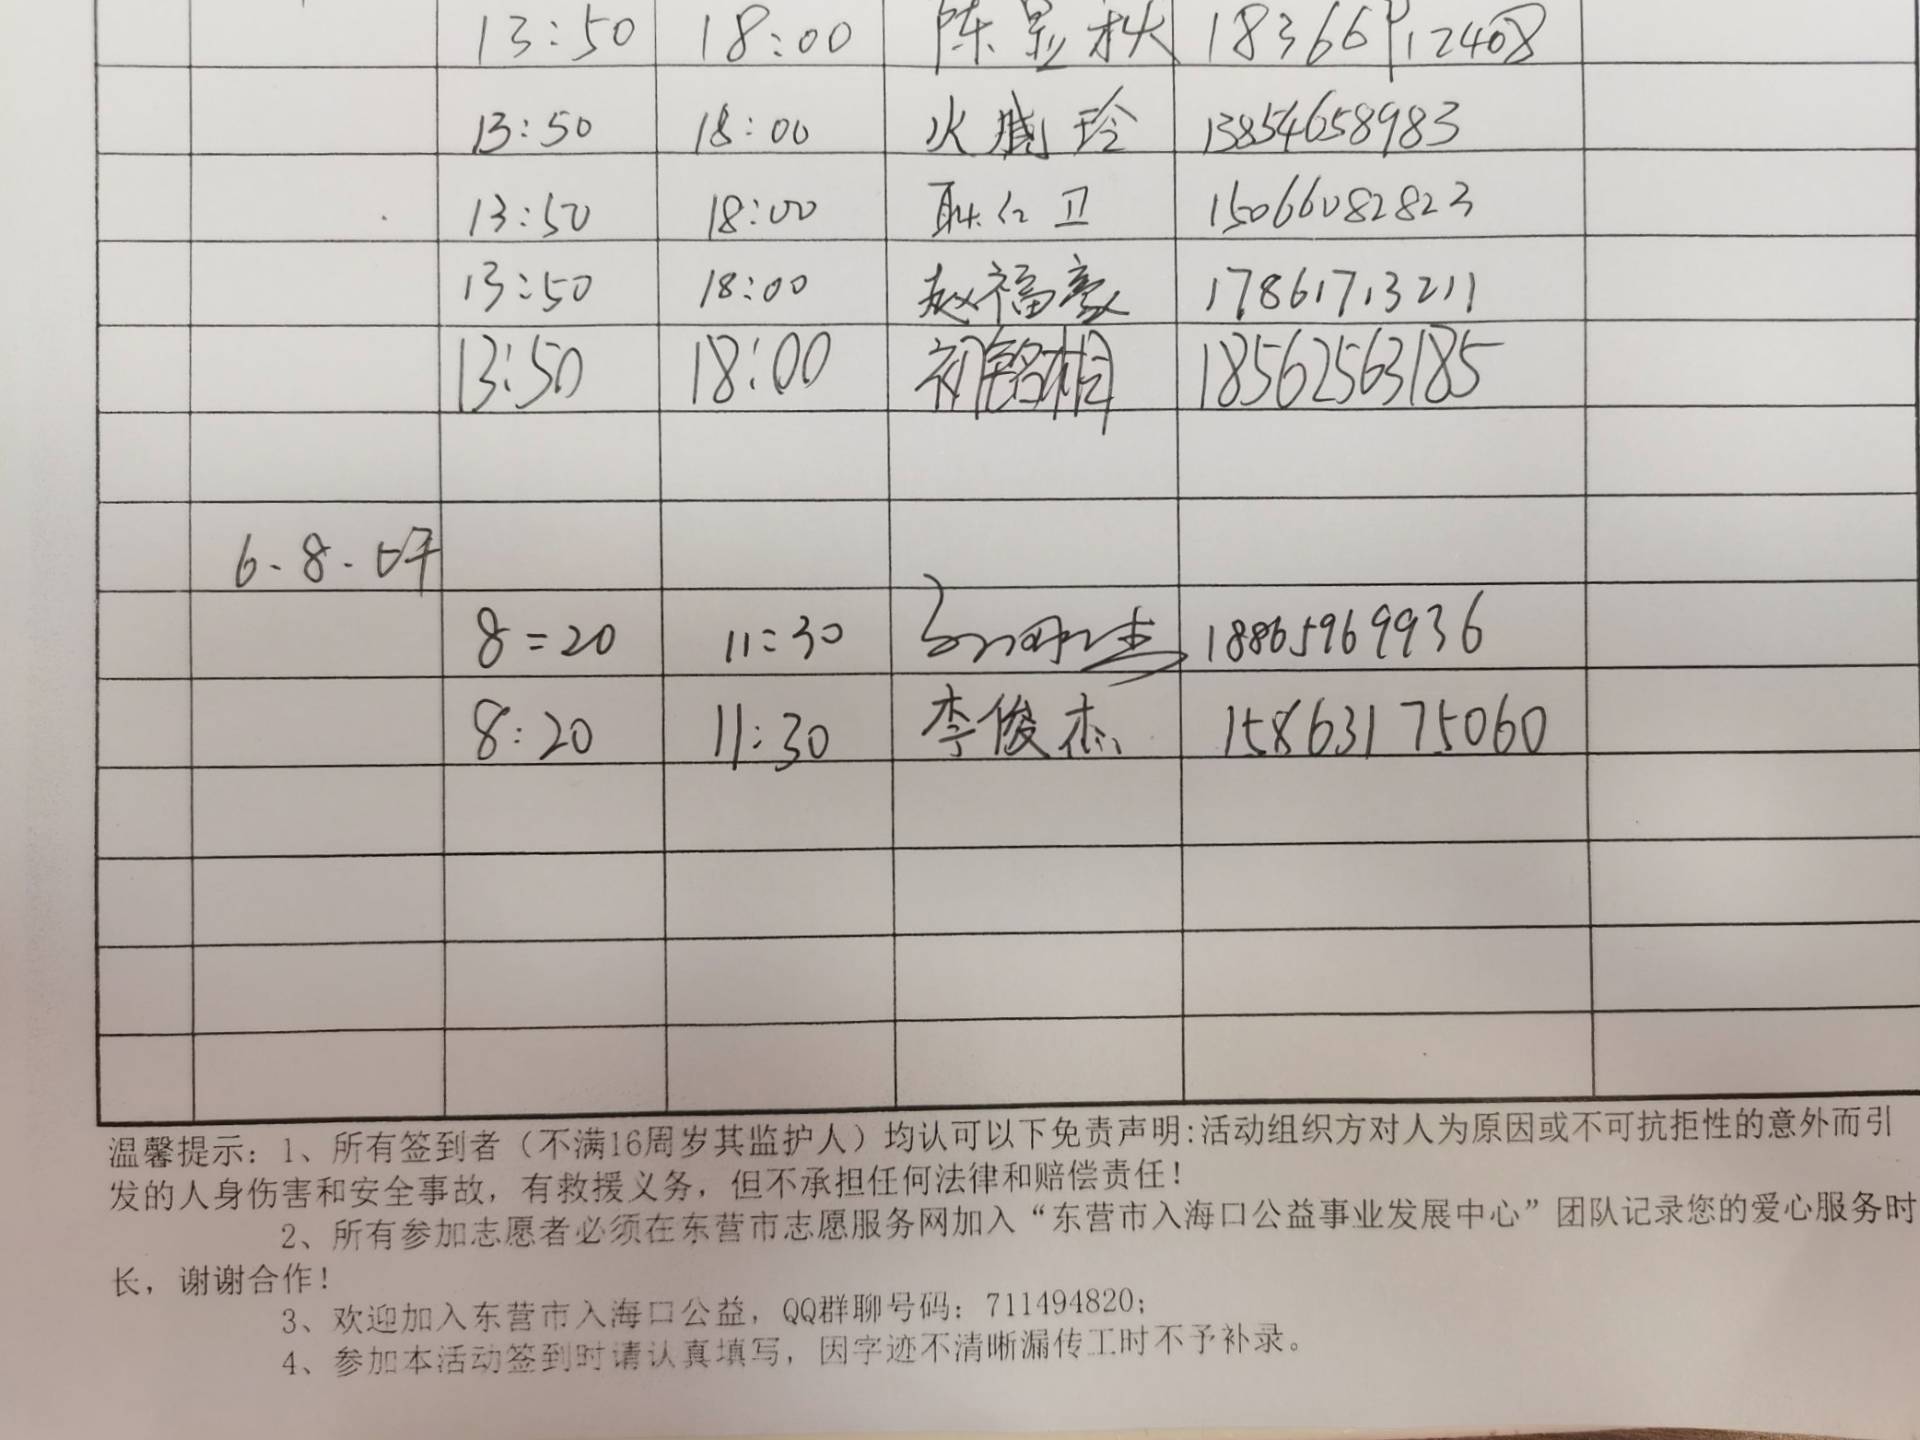 13:50 18:00 陈显秋
13:50 18:00 13854658983
13:50 18:00 耿仁卫 15066082823
13:50 18:00 赵福豪 17861713211
13:50 18:00 初铭相 18562563185
6.8.
8:20 11:30 18865969936
8:20 11:30 李俊杰 15863175060
温馨提示：1、所有签到者（不满16周岁其监护人）均认可以下免责声明:活动组织方对人为原因或不可抗拒性的意外而引
发的人身伤害和安全事故，有救援义务，但不承担任何法律和赔偿责任！
2、所有参加志愿者必须在东营市志愿服务网加入“东营市入海口公益事业发展中心”团队记录您的爱心服务时
长，谢谢合作！
3、欢迎加入东营市入海口公益，QQ群聊号码：711494820；
4、参加本活动签到时请认真填写，因字迹不清晰漏传工时不予补录。